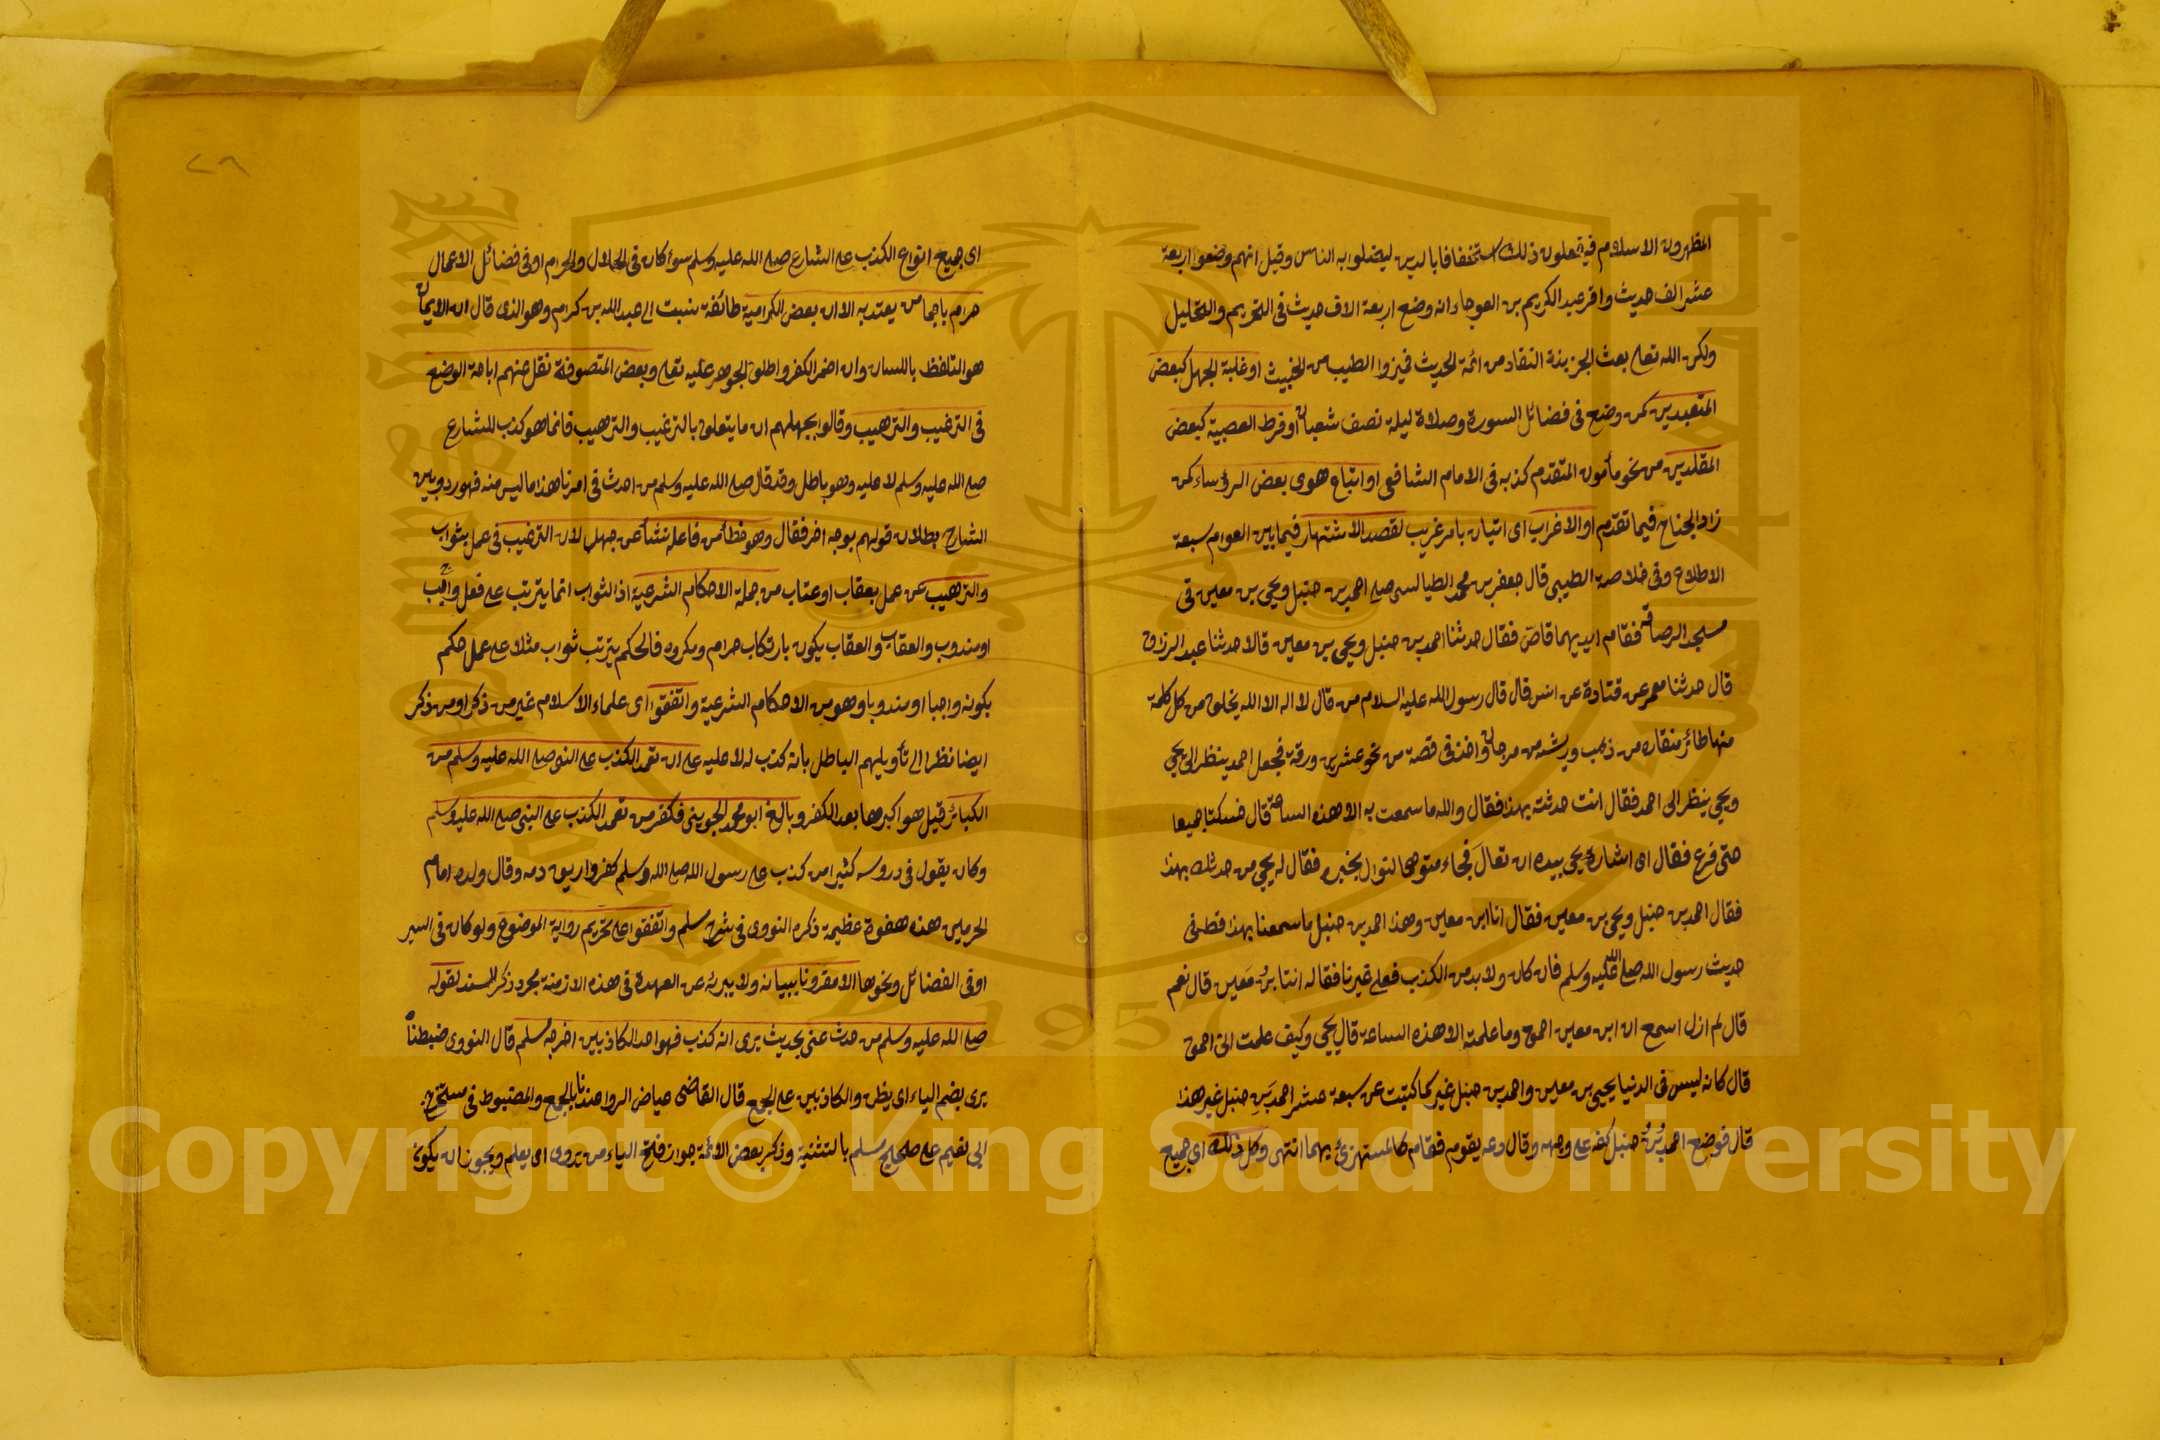 المظهرون الاسلام فيفعلون ذلك استخفافا بالدين ليضلوا به الناس وقيل انهم وضعوا اربعة
عشر الف حديث واقر عبد الكريم بن العوجاء انه وضع اربعة الاف حديث في التحريم والتحليل
ولكن الله تعلى بعث الجزبذة النقاد من ائمة الحديث فميزوا الطيب من الخبيث او غلبة الجهل كبعض
المتعبدين كمن وضع في فضائل السورة وصلاة ليلة نصف شعبان او فرط العصبية كبعض
المقلدين من نحو مأمون المتقدم كذبه في الامام الشافعي او اتباع هوى بعض الرؤساء كمن
زاد الجناح فيما تقدم او الاغراب اى اتيان بامر غريب لقصد الاشتهار فيما بين العوام سبعة
الاطلاع وفي خلاصة الطيبي قال جعفر بن محمد الطيالسى صلى احمد بن حنبل ويحيى بن معين في
مسجد الرصافة فقام ايديهما قاص فقال حدثنا احمد بن حنبل ويحيى بن معين قالا حدثنا عبد الرزاق
قال حدثنا معمر عن قتادة عن انس قال قال رسول الله عليه السلام من قال لا اله الا الله يخلق من كل كلمة
منها طائر منقاره من ذهب وريشه من مرجان واخذ في قصة من نحو عشرين ورقة فجعل احمد ينظر الى يحيى
ويحيى ينظر الى احمد فقال انت حدثته بهذا فقال والله ما سمعت به الا هذه الساعة قال فسكتا جميعا
حتى فرغ فقال اى اشارة يحيى بيده ان تعال فجاء متوهما لنوال يخبره فقال له يحيى من حدثك بهذا
فقال احمد بن حنبل ويحيى بن معين فقال انا ابن معين وهذا احمد بن حنبل ما سمعنا بهذا قط في
حديث رسول الله صلى الله عليه وسلم فان كان ولا بد من الكذب فعلى غيرنا فقال له انت ابن معين قال نعم
قال لم ازل اسمع ان ابن معين احمق وما علمته الا هذه الساعة قال يحيى وكيف علمت انى احمق
قال كانه ليس في الدنيا يحيى بن معين واحمد بن حنبل غير كما كتبت عن سبعة عشر احمد بن حنبل غير هذا
قال فوضع احمد بن حنبل كفه على وجهه وقال دعه يقوم فقام كالمستهزئ بهما انتهى وكل ذلك اي جميع
٢٨
اى جميع انواع الكذب على الشارع صلى الله عليه وسلم سواء كان في الحلال والحرام او في فضائل الاعمال
حرم باجماع من يعتد به الا ان بعض الكرامية طائفة نسبت الى عبد الله بن كرام وهو الذى قال ان الايمان
هو التلفظ باللسان وان اضمر الكفر واطلق الجوهر عليه تعلى وبعض المتصوفة نقل عنهم اباحة الوضع
في الترغيب والترهيب وقالوا بجهلهم ان ما يتعلق بالترغيب والترهيب فانما هو كذب للشارع
صلى الله عليه وسلم لا عليه وهو باطل وقد قال صلى الله عليه وسلم من احدث في امرنا هذا ما ليس منه فهو رد وبين
الشارح بطلان قولهم بوجه اخر فقال وهو خطأ من فاعله نشأ عن جهل لان الترغيب في عمل بثواب
والترهيب عن عمل بعقاب او عتاب من جملة الاحكام الشرعية اذ الثواب انما يترتب على فعل واجب
او مندوب والعقاب والعقاب يكون بارتكاب حرام ومكروه فالحكم يترتب ثواب مثلا على عمل حكم
بكونه واجبا او مندوبا وهو من الاحكام الشرعية واتفقوا اى علماء الاسلام غير من ذكر او من ذكر
ايضا نظرا الى تأويلهم الباطل بانه كذب له لا عليه على ان تعمد الكذب على النبى صلى الله عليه وسلم من
الكبائر قيل هو اكبرها بعد الكفر وبالغ ابو محمد الجويني فكفر من تعمد الكذب على النبي صلى الله عليه وسلم
وكان يقول في دروسه كثيرا من كذب على رسول الله صلى الله وسلم كفر واريق دمه وقال ولده امام
الحرمين هذه هفوة عظيمة ذكره النووى في شرح مسلم واتفقوا على تحريم رواية الموضوع ولو كان في السير
او في الفضائل ونحوها الا مقرونا ببيانه ولا يبرئه عن العهدة في هذه الازمنة مجرد ذكر المسند لقوله
صلى الله عليه وسلم من حدث عني بحديث يرى انه كذب فهو احد الكاذبين اخرجه مسلم قال النووى ضبطناه
يرى بضم الياء اى يظن والكاذبين على الجمع قال القاضى عياض الرواية عندنا بالجمع والمضبوط في مستخرج
ابي نعيم على صحيح مسلم بالتثنية وذكر بعض الائمة جواز فتح الياء من يروى اى يعلم ويجوز ان يكون
Copyright © King Saud University
1957